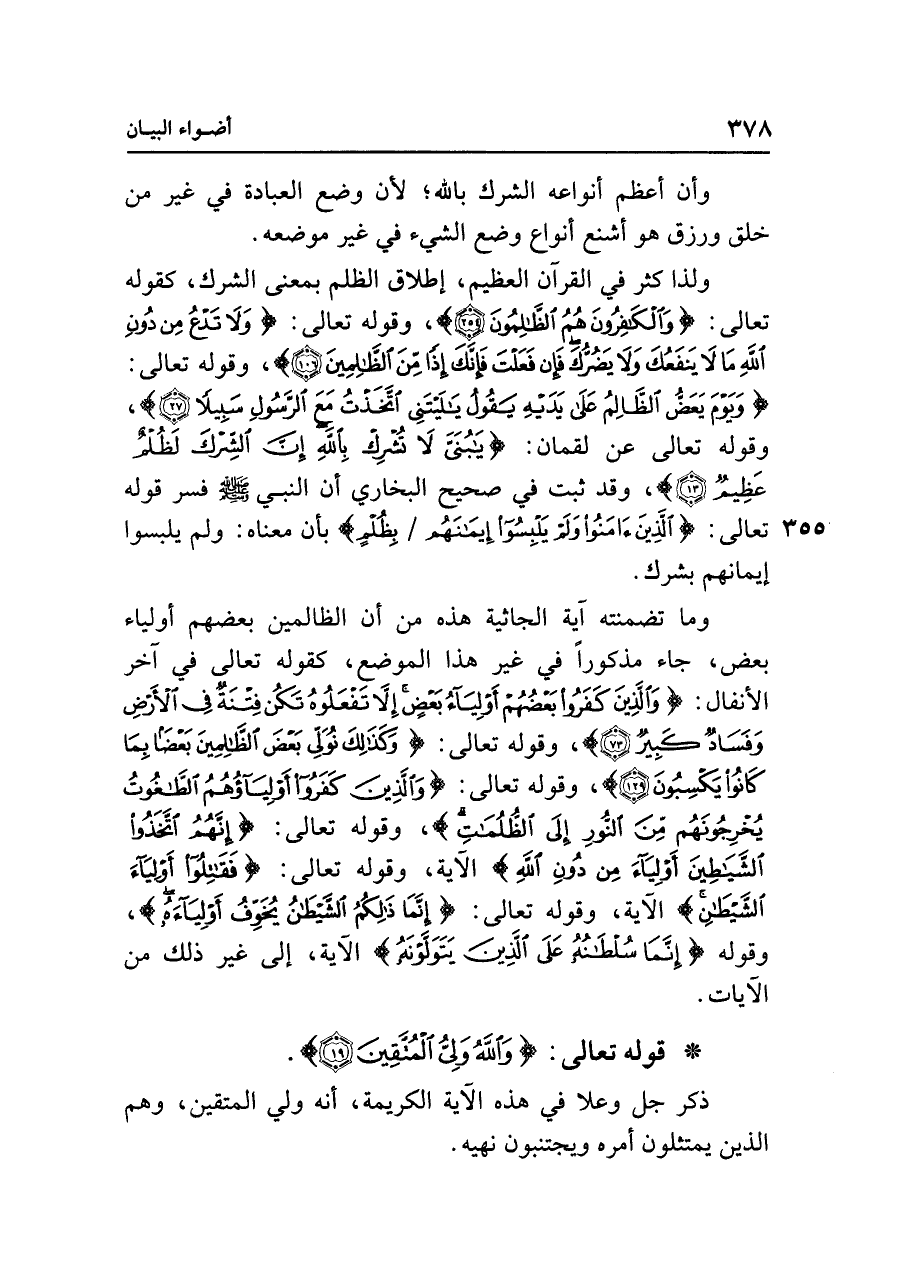 ٣٧٨ أضواء البيان
وأن أعظم أنواعه الشرك بالله؛ لأن وضع العبادة في غير من
خلق ورزق هو أشنع أنواع وضع الشيء في غير موضعه.
ولذا كثر في القرآن العظيم، إطلاق الظلم بمعنى الشرك، كقوله
تعالى: ﴿ وَٱلۡكَٰفِرُونَ هُمُ ٱلظَّٰلِمُونَ ٢٥٤﴾، وقوله تعالى: ﴿ وَلَا تَدۡعُ مِن دُونِ
ٱللَّهِ مَا لَا يَنفَعُكَ وَلَا يَضُرُّكَۖ فَإِن فَعَلۡتَ فَإِنَّكَ إِذٗا مِّنَ ٱلظَّٰلِمِينَ ١٠٦﴾، وقوله تعالى:
﴿ وَيَوۡمَ يَعَضُّ ٱلظَّالِمُ عَلَىٰ يَدَيۡهِ يَقُولُ يَٰلَيۡتَنِي ٱتَّخَذۡتُ مَعَ ٱلرَّسُولِ سَبِيلٗا ٢٧﴾،
وقوله تعالى عن لقمان: ﴿يَٰبُنَيَّ لَا تُشۡرِكۡ بِٱللَّهِۖ إِنَّ ٱلشِّرۡكَ لَظُلۡمٌ
عَظِيمٞ ١٣﴾، وقد ثبت في صحيح البخاري أن النبي ﷺ فسر قوله
٣٥٥ تعالى: ﴿ ٱلَّذِينَ ءَامَنُواْ وَلَمۡ يَلۡبِسُوٓاْ إِيمَٰنَهُم / بِظُلۡمٍ﴾ بأن معناه: ولم يلبسوا
إيمانهم بشرك.
وما تضمنته آية الجاثية هذه من أن الظالمين بعضهم أولياء
بعض، جاء مذكوراً في غير هذا الموضع، كقوله تعالى في آخر
الأنفال: ﴿ وَٱلَّذِينَ كَفَرُواْ بَعۡضُهُمۡ أَوۡلِيَآءُ بَعۡضٍۚ إِلَّا تَفۡعَلُوهُ تَكُن فِتۡنَةٞ فِي ٱلۡأَرۡضِ
وَفَسَادٞ كَبِيرٞ ٧٣﴾، وقوله تعالى: ﴿ وَكَذَٰلِكَ نُوَلِّي بَعۡضَ ٱلظَّٰلِمِينَ بَعۡضَۢا بِمَا
كَانُواْ يَكۡسِبُونَ ١٢٩﴾، وقوله تعالى: ﴿وَٱلَّذِينَ كَفَرُوٓاْ أَوۡلِيَآؤُهُمُ ٱلطَّٰغُوتُ
يُخۡرِجُونَهُم مِّنَ ٱلنُّورِ إِلَى ٱلظُّلُمَٰتِۗ ﴾، وقوله تعالى: ﴿ إِنَّهُمُ ٱتَّخَذُواْ
ٱلشَّيَٰطِينَ أَوۡلِيَآءَ مِن دُونِ ٱللَّهِ ﴾ الآية، وقوله تعالى: ﴿ فَقَٰتِلُوٓاْ أَوۡلِيَآءَ
ٱلشَّيۡطَٰنِۖ﴾ الآية، وقوله تعالى: ﴿ إِنَّمَا ذَٰلِكُمُ ٱلشَّيۡطَٰنُ يُخَوِّفُ أَوۡلِيَآءَهُۥۖ﴾،
وقوله ﴿ إِنَّمَا سُلۡطَٰنُهُۥ عَلَى ٱلَّذِينَ يَتَوَلَّوۡنَهُۥ ﴾ الآية، إلى غير ذلك من
الآيات.
* قوله تعالى: ﴿ وَٱللَّهُ وَلِيُّ ٱلۡمُتَّقِينَ ١٩﴾.
ذكر جل وعلا في هذه الآية الكريمة، أنه ولي المتقين، وهم
الذين يمتثلون أمره ويجتنبون نهيه.